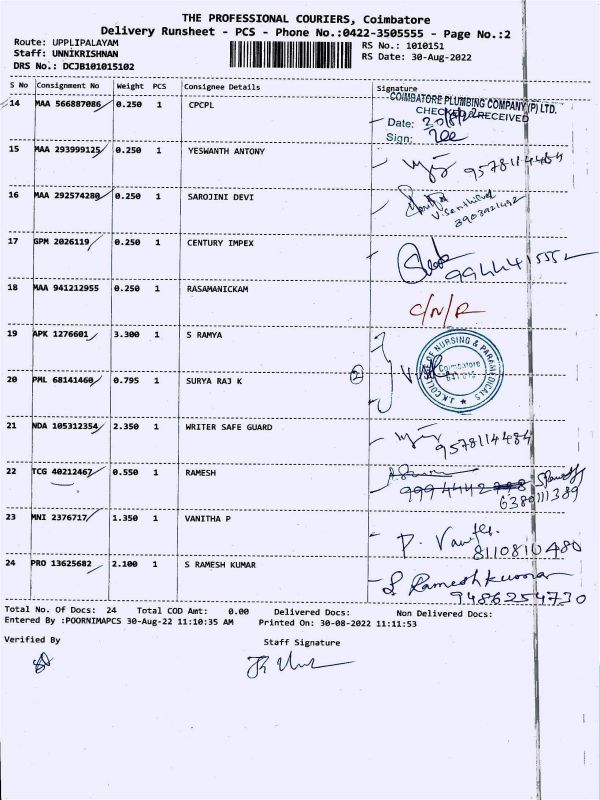 THE PROFESSIONAL COURIERS, Coimbatore
Delivery Runsheet - PCS - Phone No.:0422-3505555 - Page No.:2
Route: UPPLIPALAYAM
Staff: UNNIKRISHNAN
DRS No.: DCJB101015102
RS No.: 1010151
RS Date: 30-Aug-2022
S No Consignment No Weight PCS Consignee Details Signature
14 MAA 566887086 0.250 1 CPCPL
COIMBATORE PLUMBING COMPANY (P) LTD.
CHECKED & RECEIVED
Date: 30/8/22
Sign:
15 MAA 293999125 0.250 1 YESWANTH ANTONY 9578114484
16 MAA 292574280 0.250 1 SAROJINI DEVI
V.Senthil
17 GPM 2026119 0.250 1 CENTURY IMPEX 9944441555
18 MAA 941212955 0.250 1 RASAMANICKAM C/N/R
19 APK 1276601 3.300 1 S RAMYA
J.K COLLEGE OF NURSING & PARAMEDICALS
Coimbatore
641 015
20 PML 68141460 0.795 1 SURYA RAJ K 2
21 NDA 105312354 2.350 1 WRITER SAFE GUARD 9578114484
22 TCG 40212467 0.550 1 RAMESH
6380111389
23 MNI 2376717 1.350 1 VANITHA P P. Vanitha
8110810480
24 PRO 13625682 2.100 1 S RAMESH KUMAR S Rameshkumar
9486254730
Total No. Of Docs: 24 Total COD Amt: 0.00 Delivered Docs: Non Delivered Docs:
Entered By :POORNIMAPCS 30-Aug-22 11:10:35 AM Printed On: 30-08-2022 11:11:53
Verified By Staff Signature